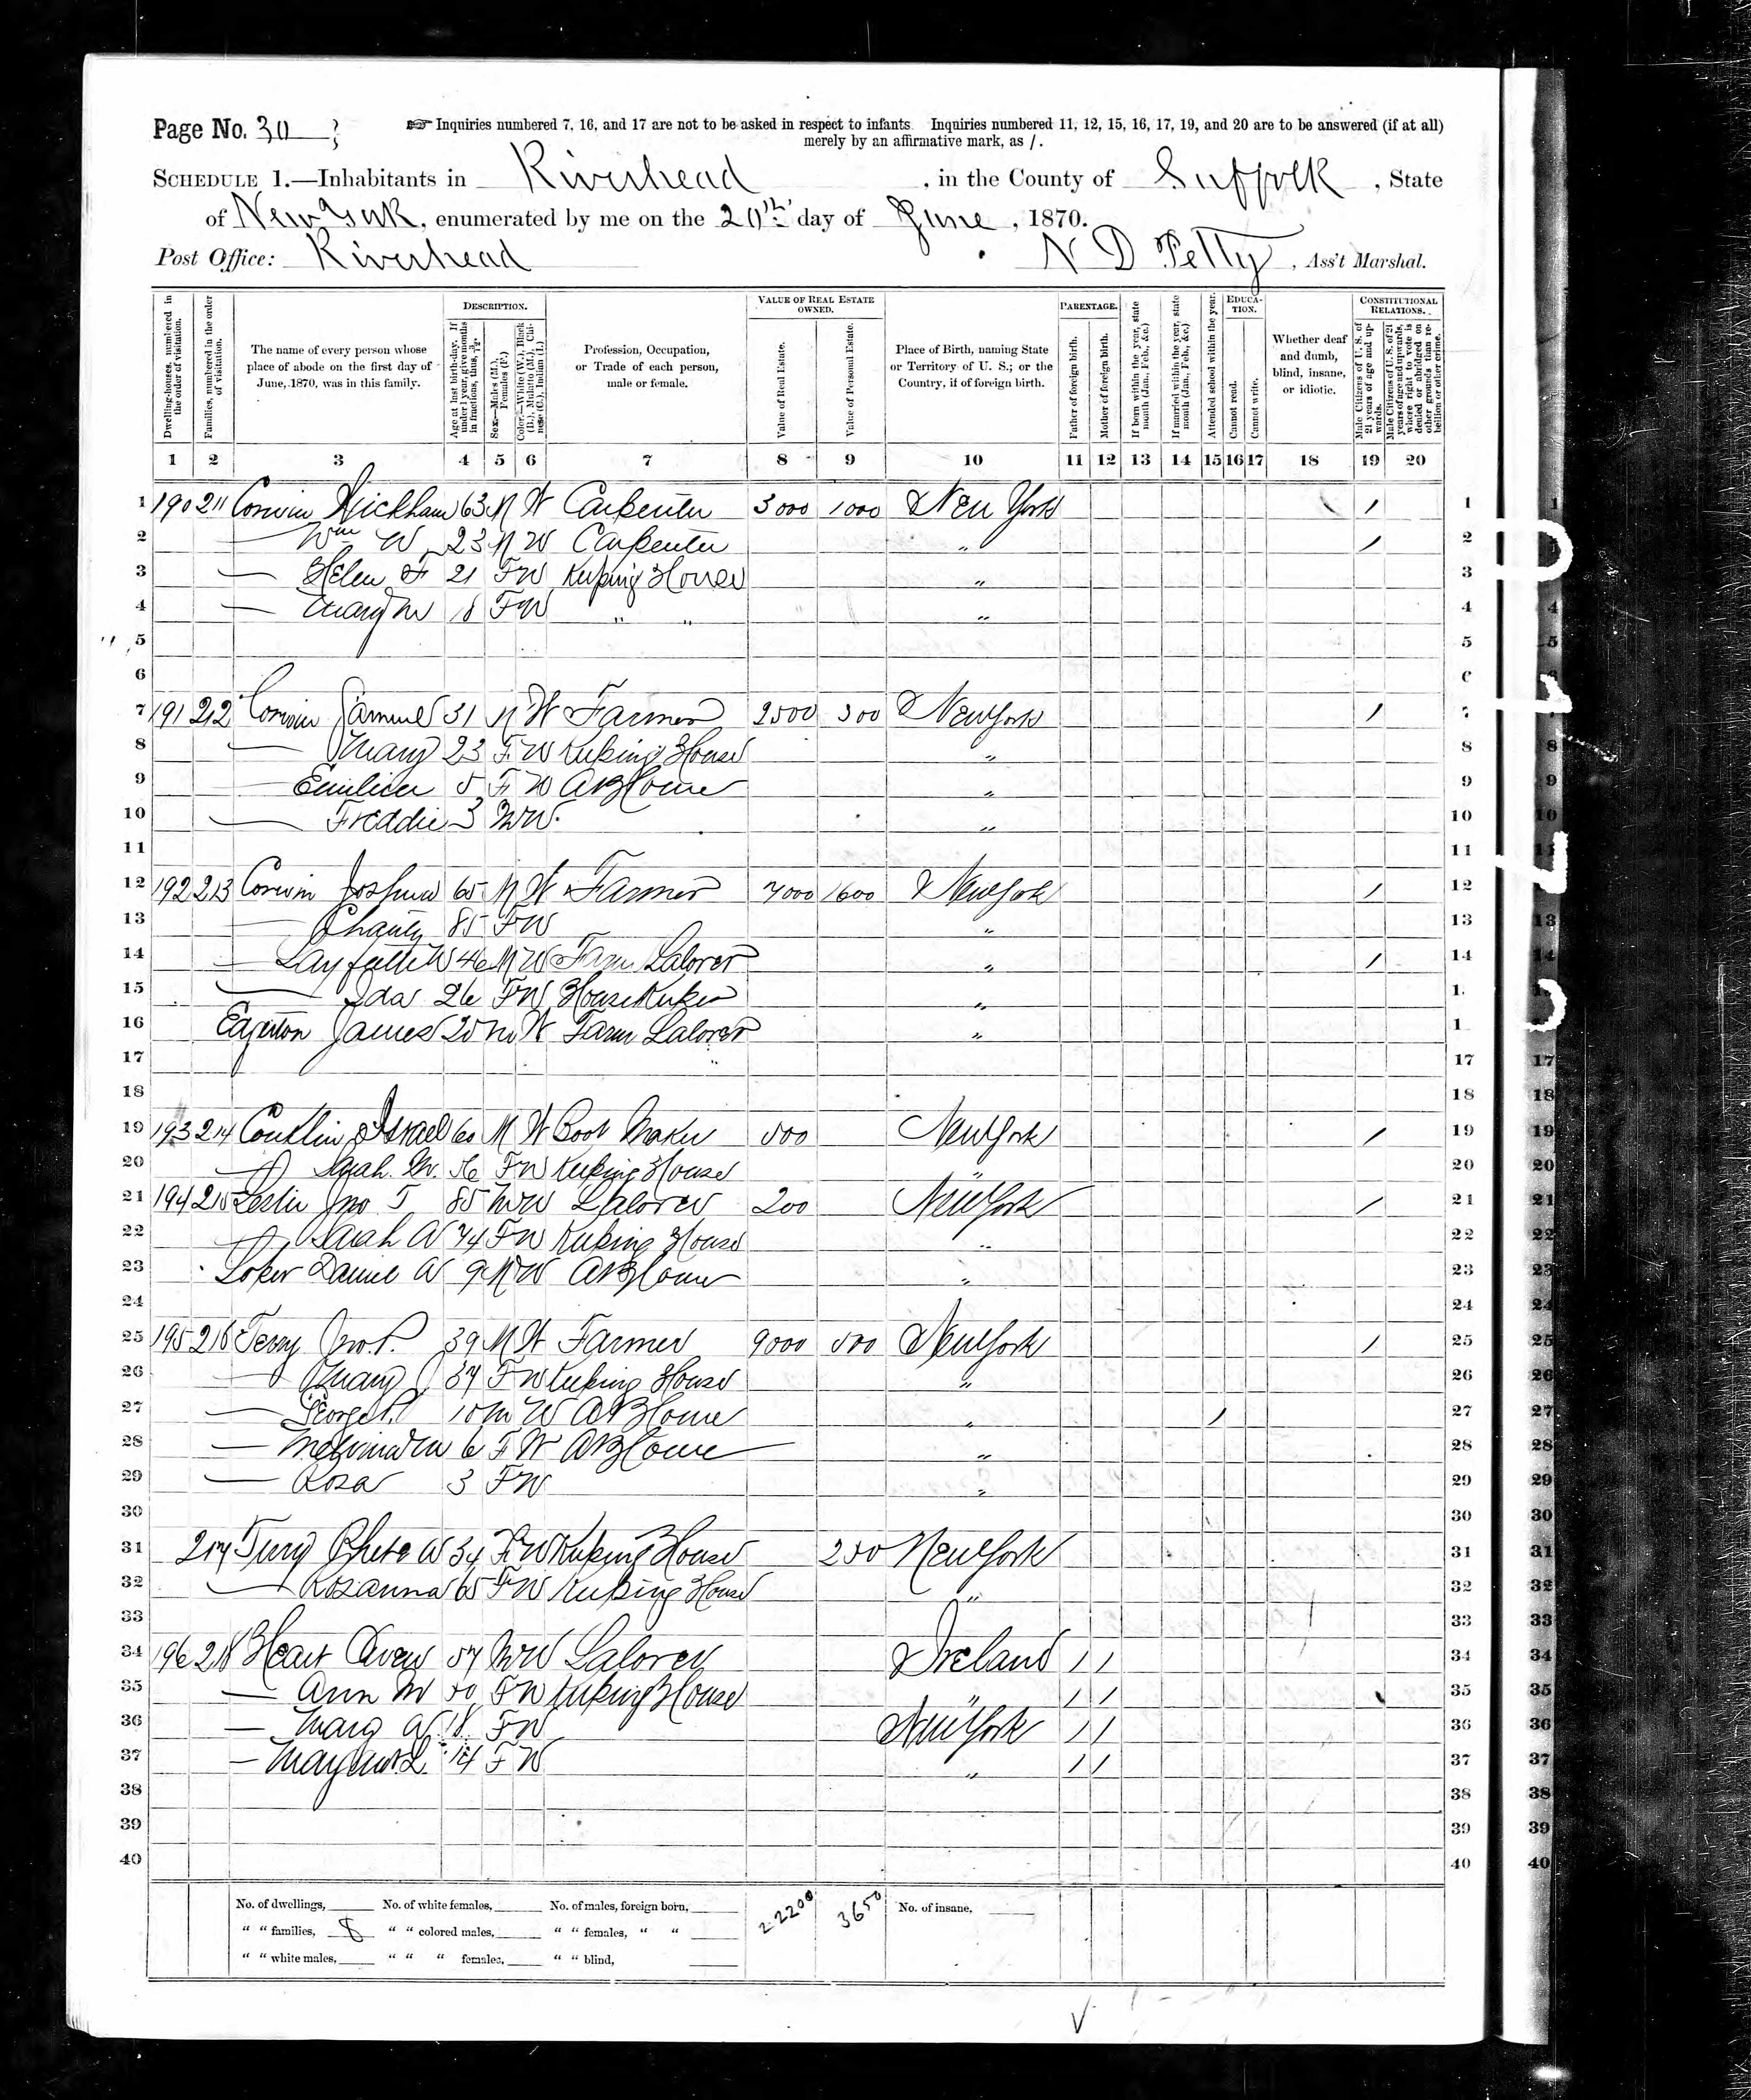 Page No. 30
☞ Inquiries numbered 7, 16, and 17 are not to be asked in respect to infants. Inquiries numbered 11, 12, 15, 16, 17, 19, and 20 are to be answered (if at all)
merely by an affirmative mark, as /.
SCHEDULE 1.—Inhabitants in Riverhead, in the County of Suffolk, State
of New York, enumerated by me on the 20th day of June, 1870.
Post Office: Riverhead N D Petty, Ass't Marshal.
Dwelling-houses, numbered in the order of visitation.
Families, numbered in the order of visitation.
The name of every person whose place of abode on the first day of June, 1870, was in this family.
DESCRIPTION.
Age at last birth-day. If under 1 year, give months in fractions, thus, 3/12.
Sex.—Males (M.), Females (F.)
Color.—White (W.), Black (B.), Mulatto (M.), Chinese (C.), Indian (I.)
Profession, Occupation, or Trade of each person, male or female.
VALUE OF REAL ESTATE OWNED.
Value of Real Estate.
Value of Personal Estate.
Place of Birth, naming State or Territory of U. S.; or the Country, if of foreign birth.
PARENTAGE.
Father of foreign birth.
Mother of foreign birth.
If born within the year, state month (Jan., Feb., &c.)
If married within the year, state month (Jan., Feb., &c.)
Attended school within the year.
EDUCATION.
Cannot read.
Cannot write.
Whether deaf and dumb, blind, insane, or idiotic.
CONSTITUTIONAL RELATIONS.
Male Citizens of U. S. of 21 years of age and upwards.
Male Citizens of U. S. of 21 years of age and upwards, where right to vote is denied or abridged on other grounds than rebellion or other crime.
1 2 3 4 5 6 7 8 9 10 11 12 13 14 15 16 17 18 19 20
1 190 211 Corwin Wickham 63 M W Carpenter 3000 1000 New York / 1
2 — Wm W 23 M W Carpenter " / 2
3 — Helen F 21 F W Keeping House " 3
4 — Mary M 18 F W " " " 4
5 5
6 6
7 191 212 Corwin Samuel 31 M W Farmer 2500 300 New York / 7
8 — Mary 23 F W Keeping House " 8
9 — 5 F W At Home " 9
10 — Freddie 3 M W " 10
11 11
12 192 213 Corwin Joshua 65 M W Farmer 7000 1600 New York / 12
13 — Charity 85 F W " 13
14 — Layfette W 46 M W Farm Laborer " / 14
15 — Ida 26 F W House Keeper "
16 Edgerton James 20 M W Farm Laborer "
17 17
18 18
19 193 214 Conklin Israel 60 M W Boot Maker 500 New York / 19
20 — Sarah M. 56 F W Keeping House " 20
21 194 215 Leslie Jno T 85 M W Laborer 200 New York / 21
22 — Sarah A 74 F W Keeping House " 22
23 Loper Daniel W 9 M W At Home " 23
24 24
25 195 216 Terry Jno P. 39 M W Farmer 9000 500 New York / 25
26 — Mary J 37 F W Keeping House " 26
27 — George P. 10 M W At Home " / 27
28 — 6 F W At Home " 28
29 — Rosa 3 F W " 29
30 30
31 217 Terry Phebe A 34 F W Keeping House 250 New York 31
32 — Rosanna 65 F W Keeping House " 32
33 33
34 196 218 Heart Owen 57 M W Laborer Ireland / / 34
35 — Ann M 50 F W Keeping House " / / 35
36 — Mary A 18 F W New York / / 36
37 — Margaret L. 14 F W " / / 37
38 38
39 39
40 40
No. of dwellings, No. of white females, No. of males, foreign born, 22200 3650 No. of insane,
" " families, 8 " " colored males, " " females, " "
" " white males, " " " females, " " blind,